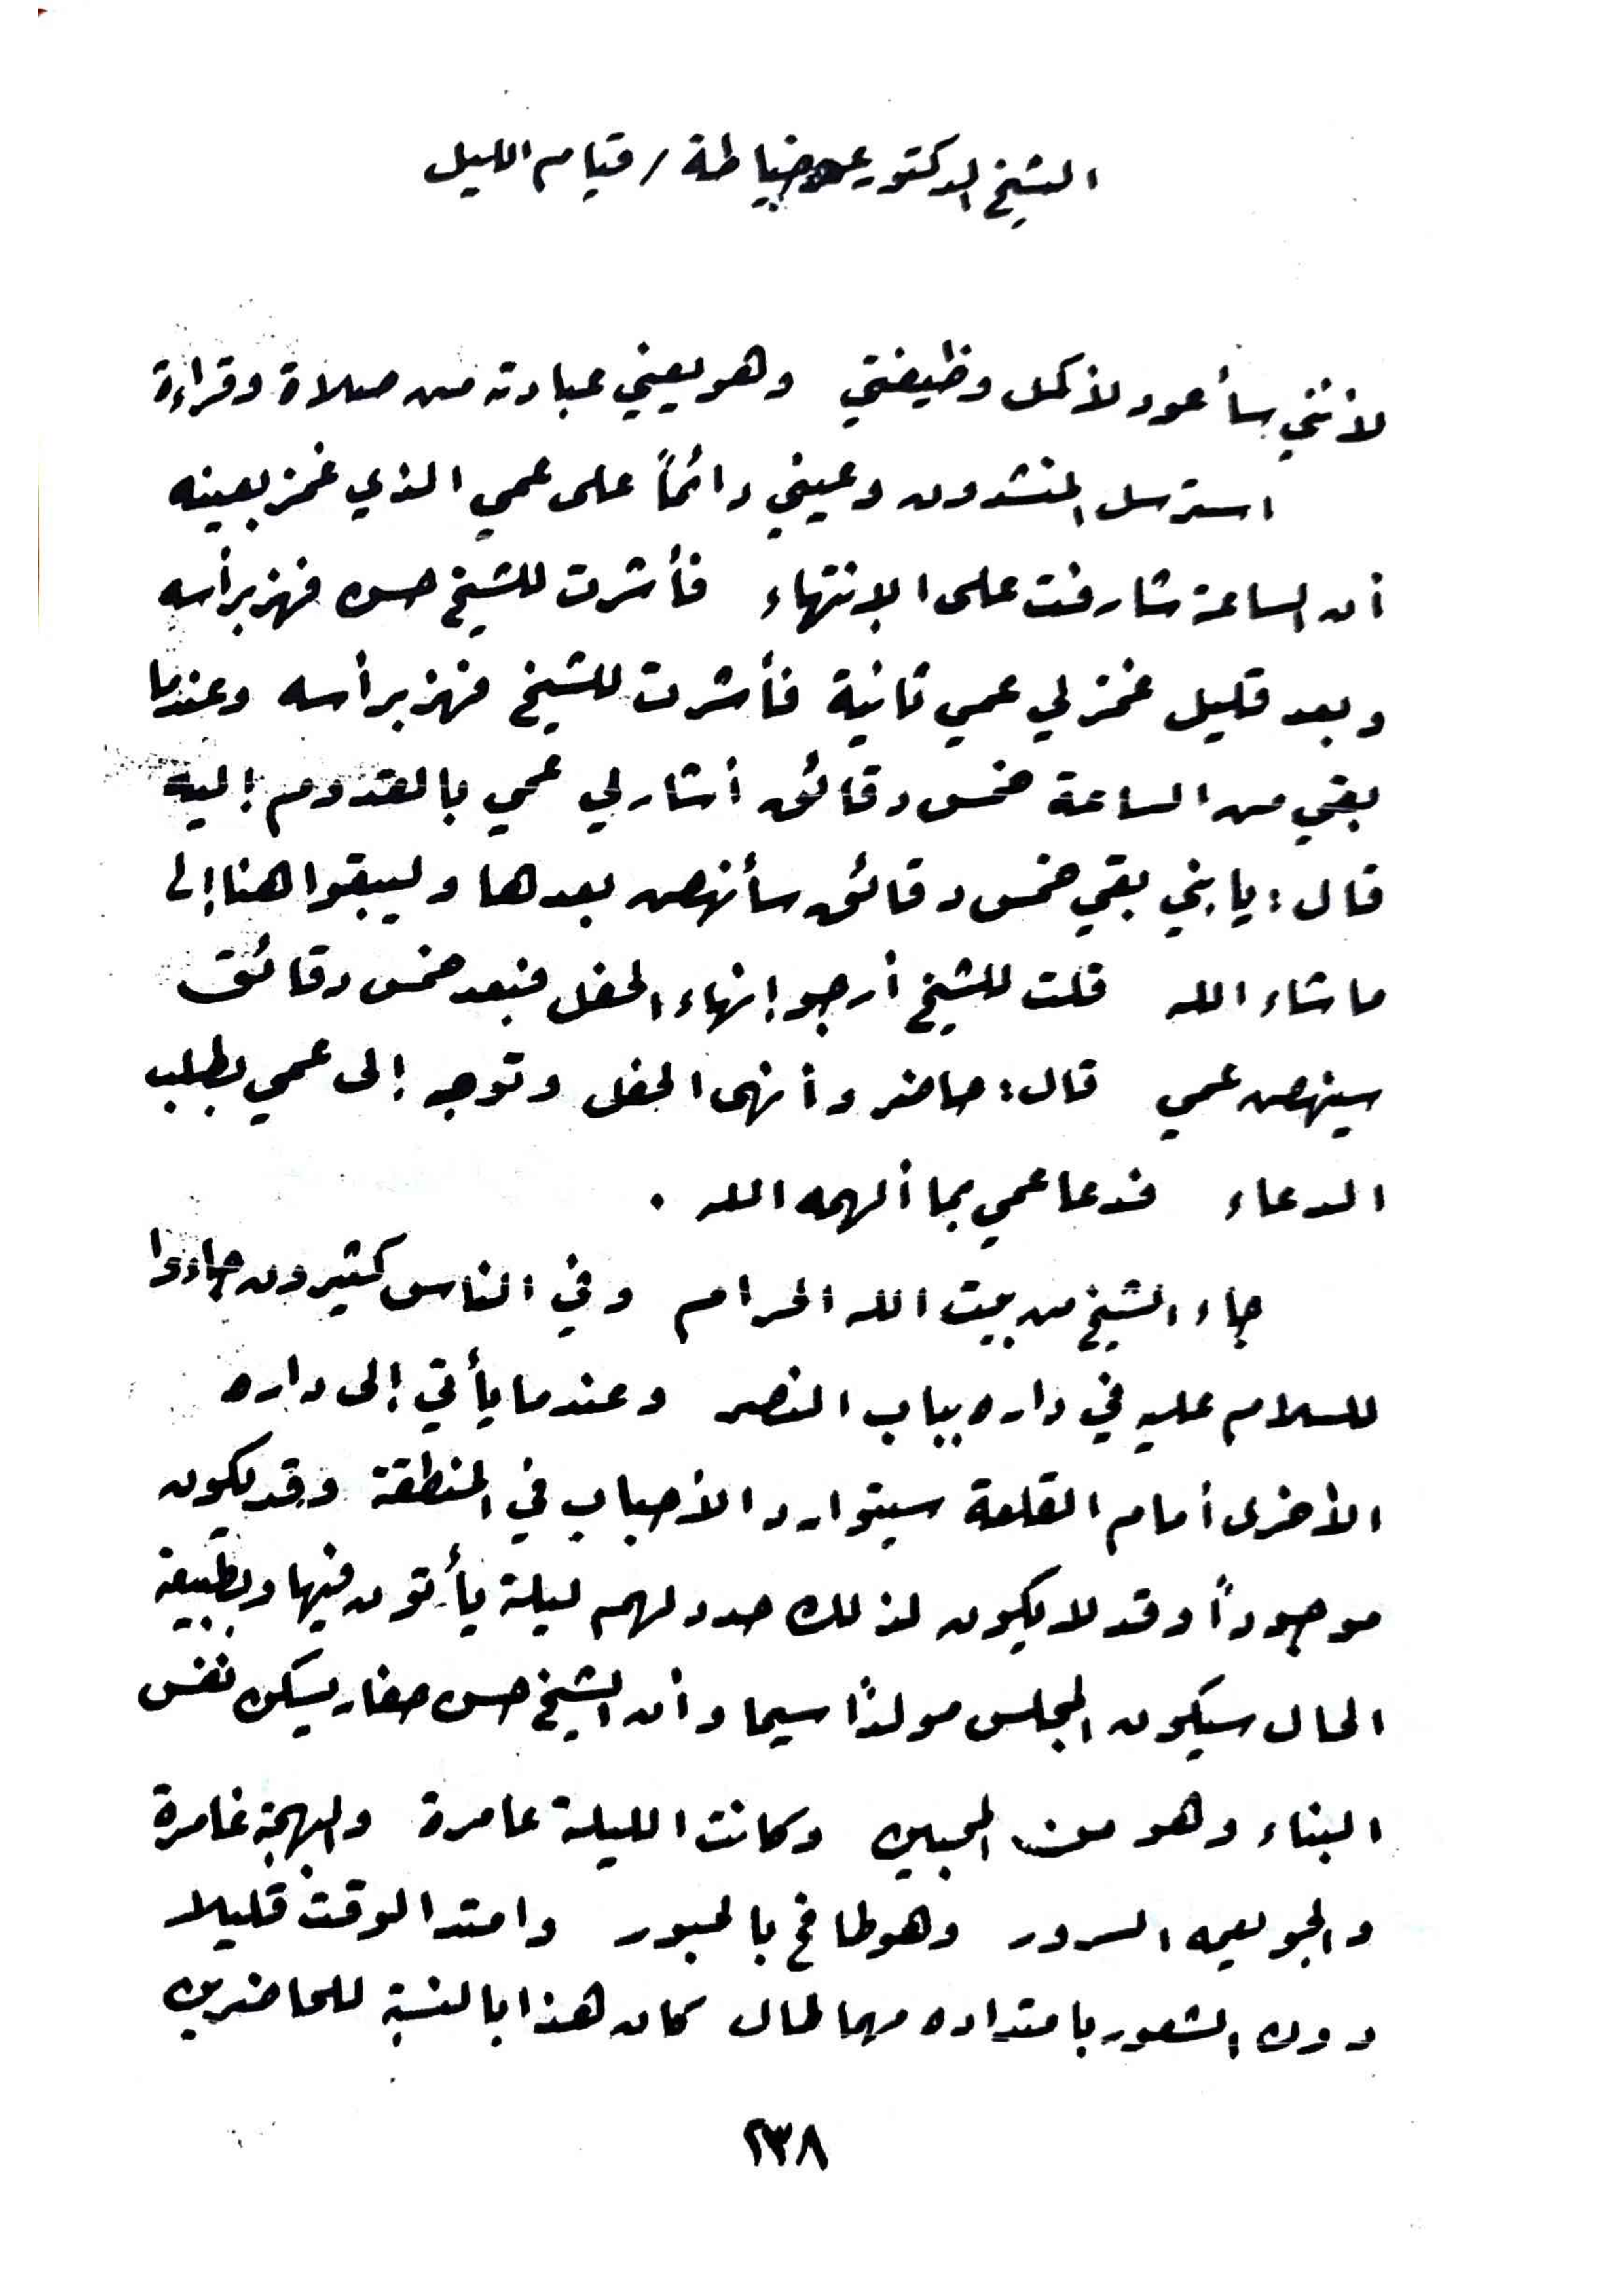 الشيخ الدكتور عمر خياطة / قيام الليل
لأنني سأعود لأكمل وظيفتي وهو يعني عبادته من صلاة وقراءة
استرسل المنشدون وعيني دائماً على عمي الذي غمز بعينه
أن الساعة شارفت على الانتهاء فأشرت للشيخ حسن فهز برأسه
وبعد قليل غمز لي عمي ثانية فأشرت للشيخ فهز برأسه وعندما
بقي من الساعة خمس دقائق أشار لي عمي بالقدوم إليه
قال: يا بني بقي خمس دقائق سأنهض بعدها وليبقوا هنا إلى
ما شاء الله قلت للشيخ أرجو إنهاء الحفل فبعد خمس دقائق
سينهض عمي قال: حاضر وأنهى الحفل وتوجه إلى عمي بطلب
الدعاء فدعا عمي بما ألهمه الله .
جاء الشيخ من بيت الله الحرام وفي الناس كثيرون جاؤوا
للسلام عليه في داره بباب النصر وعندما يأتي إلى داره
الأخرى أمام القلعة سيتوارد الأحباب في المنطقة وقد يكون
موجوداً وقد لا يكون لذلك حدد لهم ليلة يأتون فيها وبطبيعة
الحال سيكون المجلس مولداً سيما وأن الشيخ حسن حفار يسكن نفس
البناء وهو من المحبين وكانت الليلة عامرة والبهجة غامرة
والجو يعمه السرور وهو طافح بالحبور وامتد الوقت قليلا
دون الشعور بامتداده مهما طال كان هذا بالنسبة للحاضرين
٢٣٨